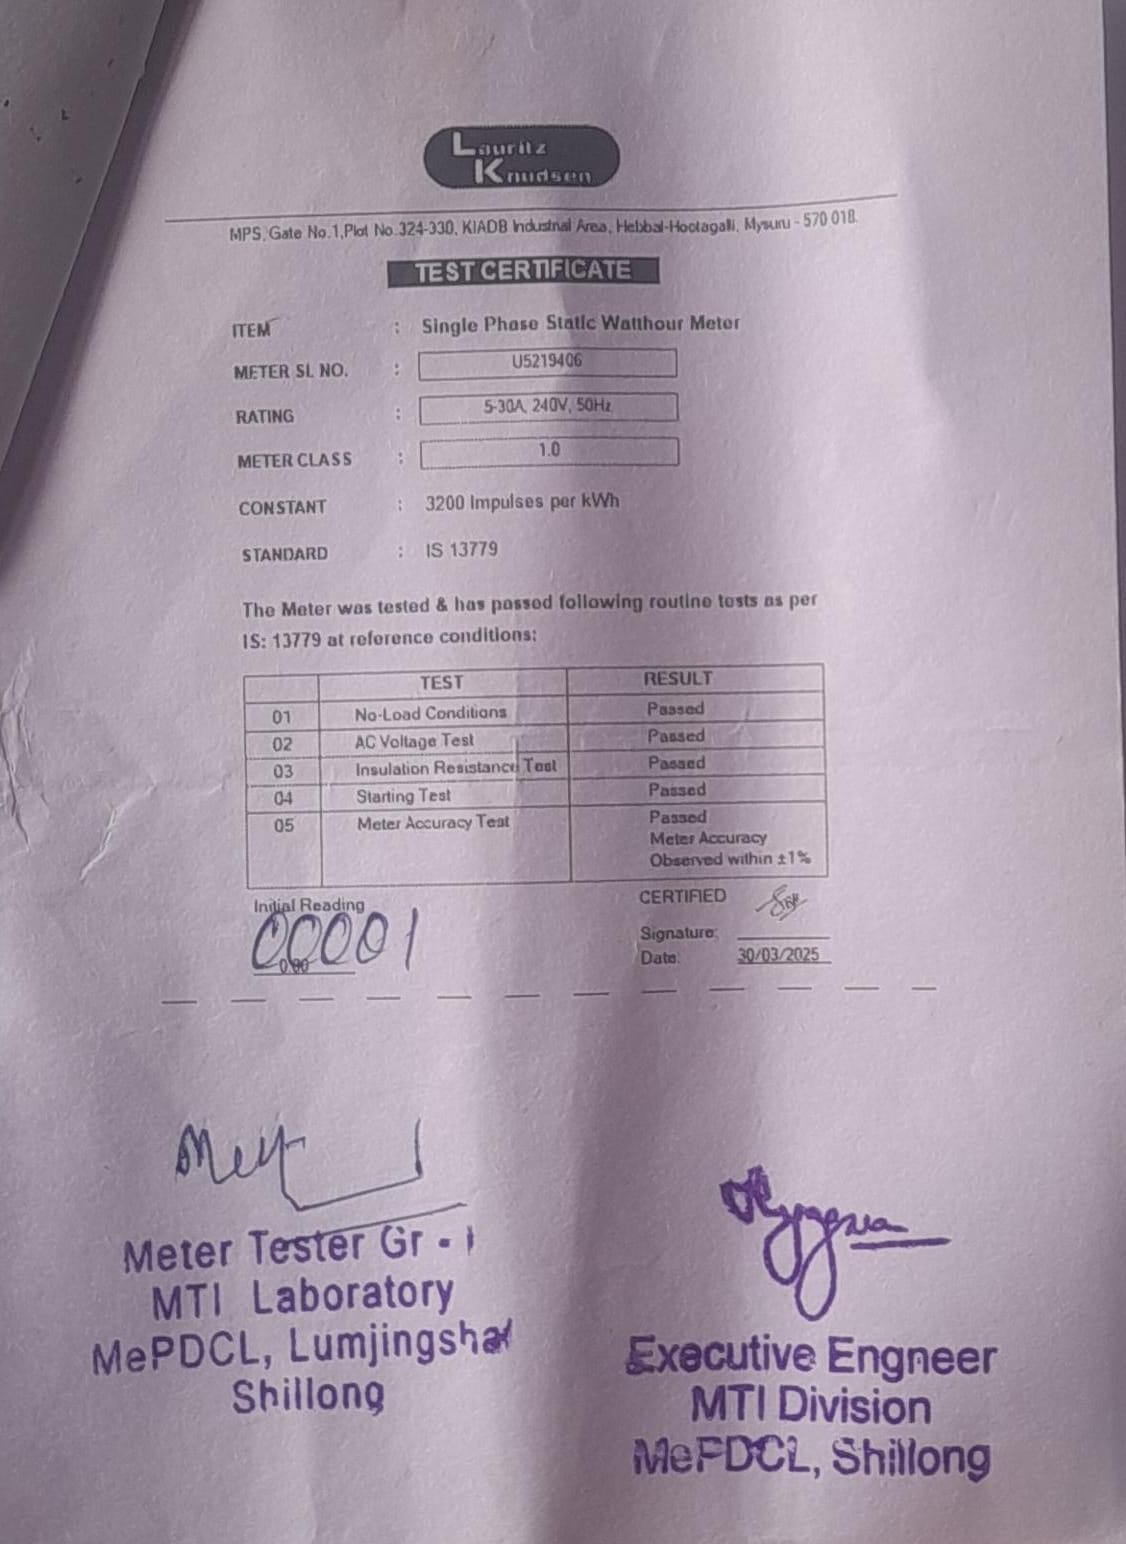 Lauritz
Knudsen
MPS, Gate No.1,Plot No.324-330, KIADB Industrial Area, Hebbal-Hootagalli, Mysuru - 570 018.
TEST CERTIFICATE
ITEM : Single Phase Static Watthour Meter
METER SL NO. : U5219406
RATING : 5-30A, 240V, 50Hz
METER CLASS : 1.0
CONSTANT : 3200 Impulses per kWh
STANDARD : IS 13779
The Meter was tested & has passed following routine tests as per
IS: 13779 at reference conditions:
TEST RESULT
01 No-Load Conditions Passed
02 AC Voltage Test Passed
03 Insulation Resistance Test Passed
04 Starting Test Passed
05 Meter Accuracy Test Passed
Meter Accuracy
Observed within ±1%
Initial Reading
00001
0.00
CERTIFIED
Signature:
Date: 30/03/2025
Meter Tester Gr - I
MTI Laboratory
MePDCL, Lumjingshai
Shillong
Executive Engneer
MTI Division
MePDCL, Shillong